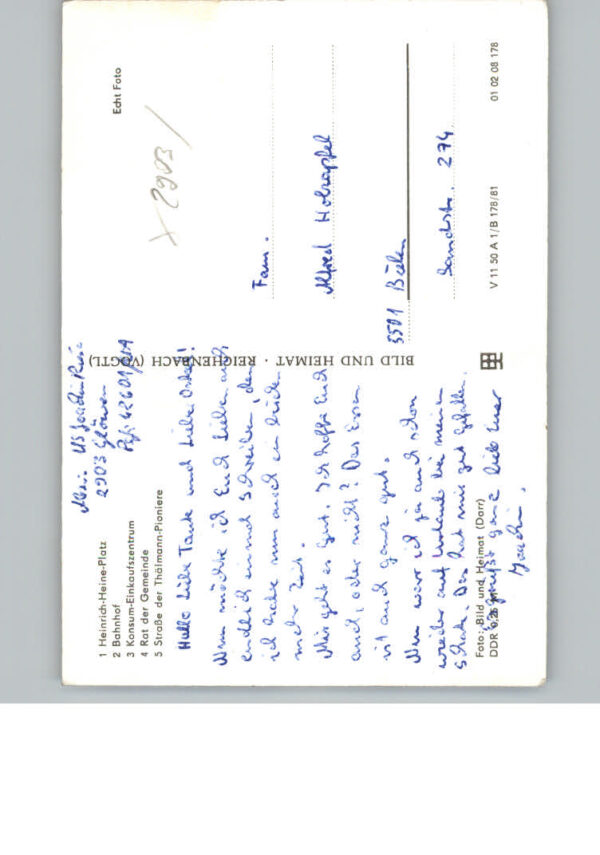 Abs.: US Joachim
2903 Glöwen
1 Heinrich-Heine-Platz
2 Bahnhof
3 Konsum-Einkaufszentrum
4 Rat der Gemeinde
5 Straße der Thälmann-Pioniere
Hallo liebe Tante und lieber Onkel!
Nun möchte ich Euch lieben auch
endlich einmal schreiben, denn
ich habe nun auch ein bißchen
mehr Zeit.
Mir geht es gut. Ich hoffe Euch
auch, oder nicht? Das Essen
ist auch ganz gut.
Nun war ich ja auch schon
wieder auf Urlaub bei meinem
Schatz. Das hat mir gut gefallen.
Es grüßt ganz lieb Euer
Joachim.
Foto: Bild und Heimat (Darr)
DDR 0,26 M
BILD UND HEIMAT · REICHENBACH (VOGTL)
Echt Foto
X 2903 /
Fam.
Alfred Holzapfel
5501
Sandstr. 274
V 11 50 A 1/B 178/81
01 02 08 178